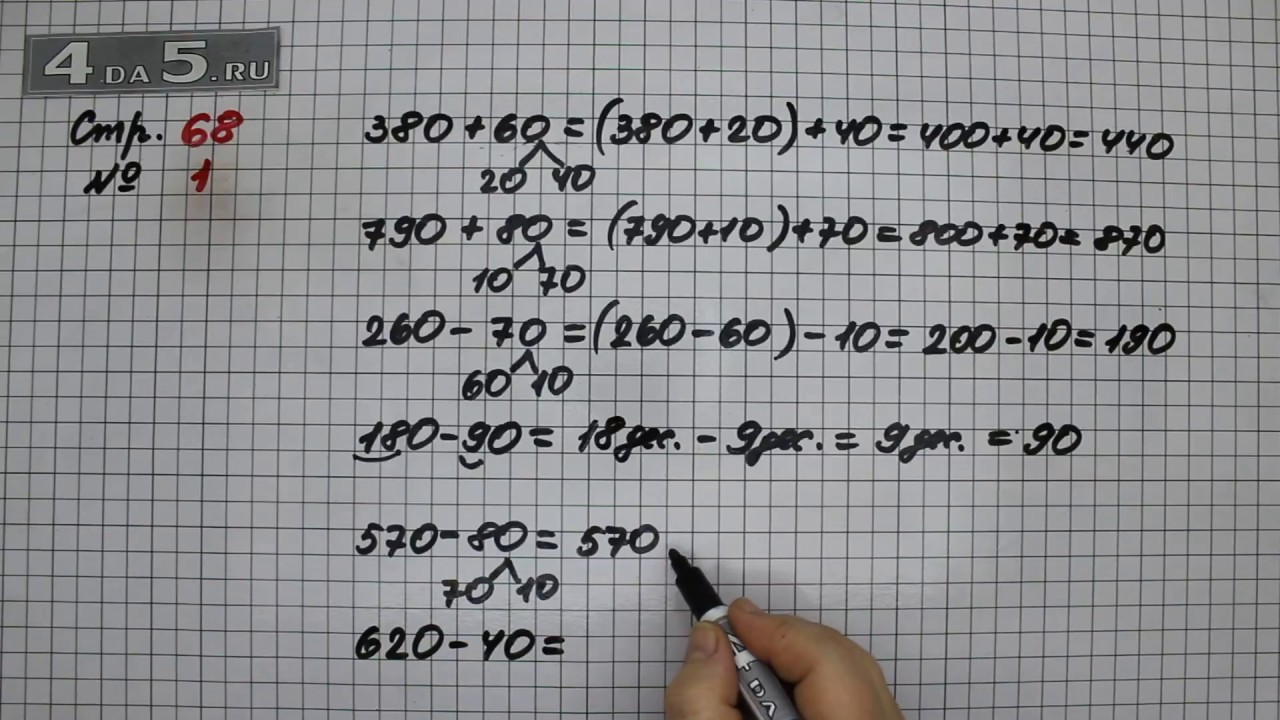 4.DA 5.RU
Стр. 68
№ 1
380 + 60 = (380 + 20) + 40 = 400 + 40 = 440
20 40
790 + 80 = (790 + 10) + 70 = 800 + 70 = 870
10 70
260 - 70 = (260 - 60) - 10 = 200 - 10 = 190
60 10
180 - 90 = 18 дес. - 9 дес. = 9 дес. = 90
570 - 80 = 570
70 10
620 - 40 =
4 DA